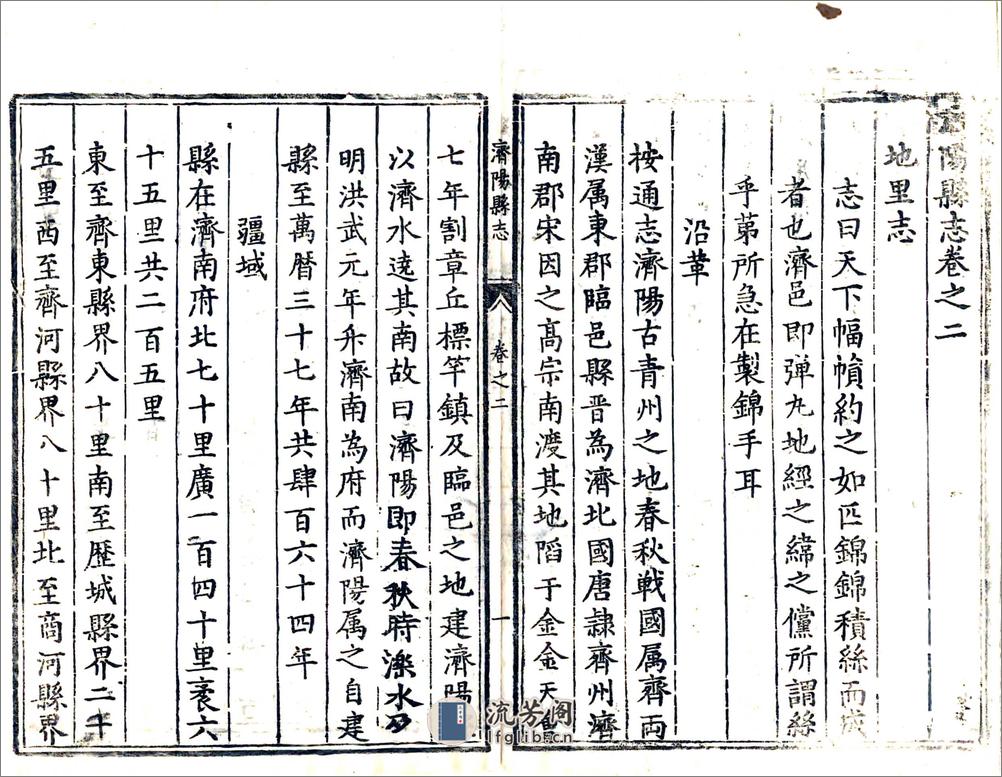 濟陽縣志卷之二
地里志
志曰天下幅幀約之如匹錦錦積絲而成
者也濟邑即弹九地經之緯之儻所謂絲
乎苐所急在製錦手耳
沿革
桉通志濟陽古青州之地春秋戰國属齊両
漢属東郡臨邑縣晋為濟北國唐隷齊州濟
南郡宋因之髙宗南渡其地䧟于金金天會
濟陽縣志
卷之二
一
七年割章丘標竿鎮及臨邑之地建濟陽
以濟水遶其南故曰濟陽即春秋時濼水
明洪武元年升濟南為府而濟陽属之自建
縣至萬曆三十七年共肆百六十四年
疆域
縣在濟南府北七十里廣一百四十里袤六
十五里共二百五里
東至齊東縣界八十里南至歷城縣界二十
五里西至齊河縣界八十里北至商河縣界
流芳阁
lfglib.cn